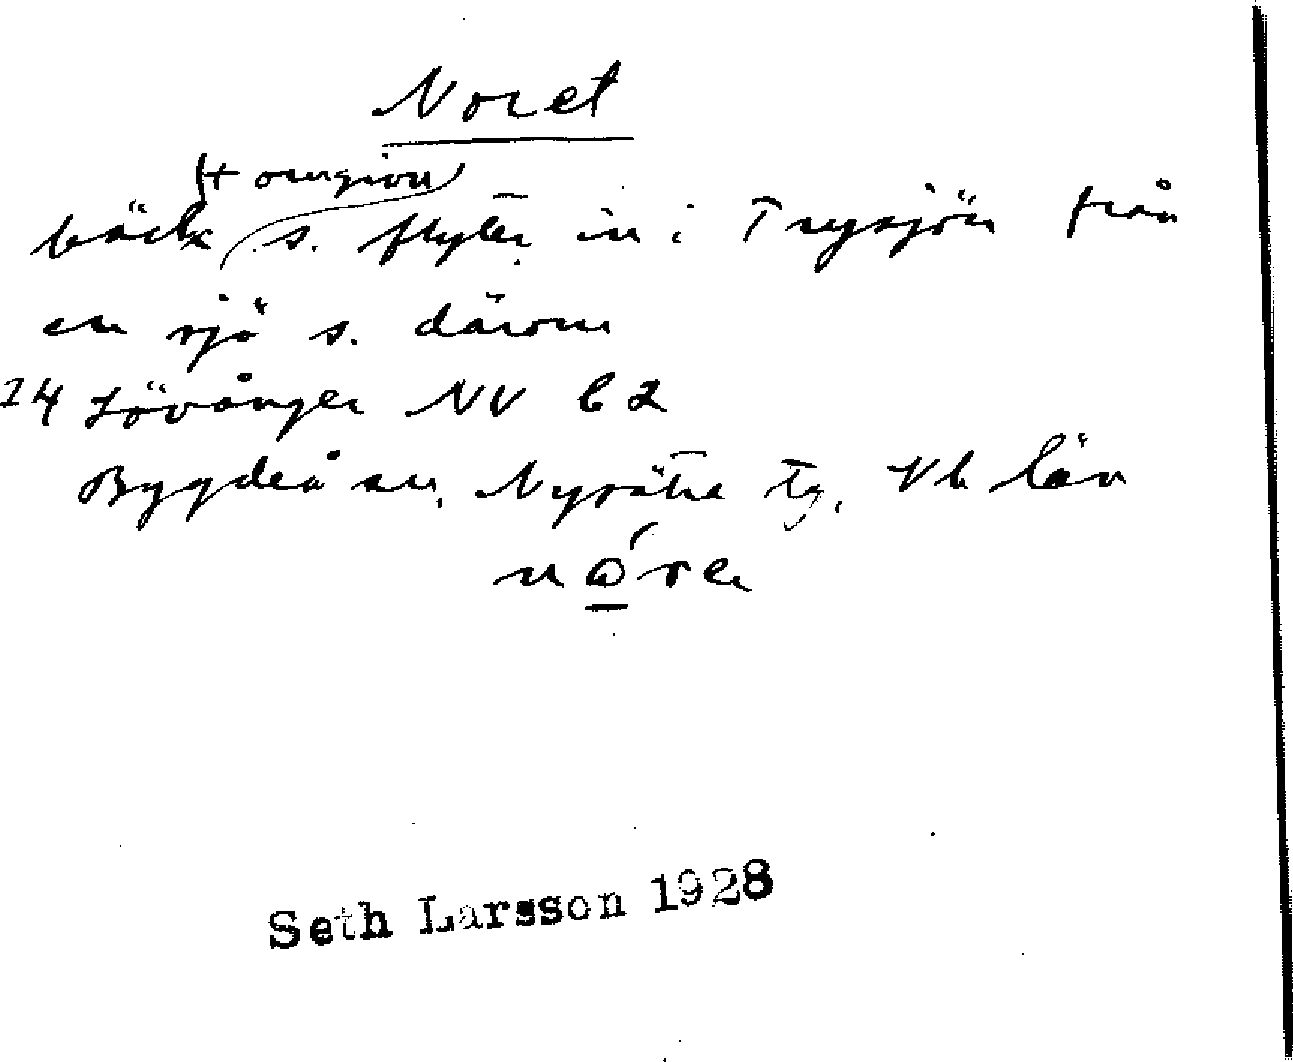 Noret
(+ omgivn)
bäck s. flyter in i Trysjön från
en sjö s. därom
14 Lövånger NV b 2
Bygdeå sn, Nysätra tg, Vb län
Seth Larsson 1928